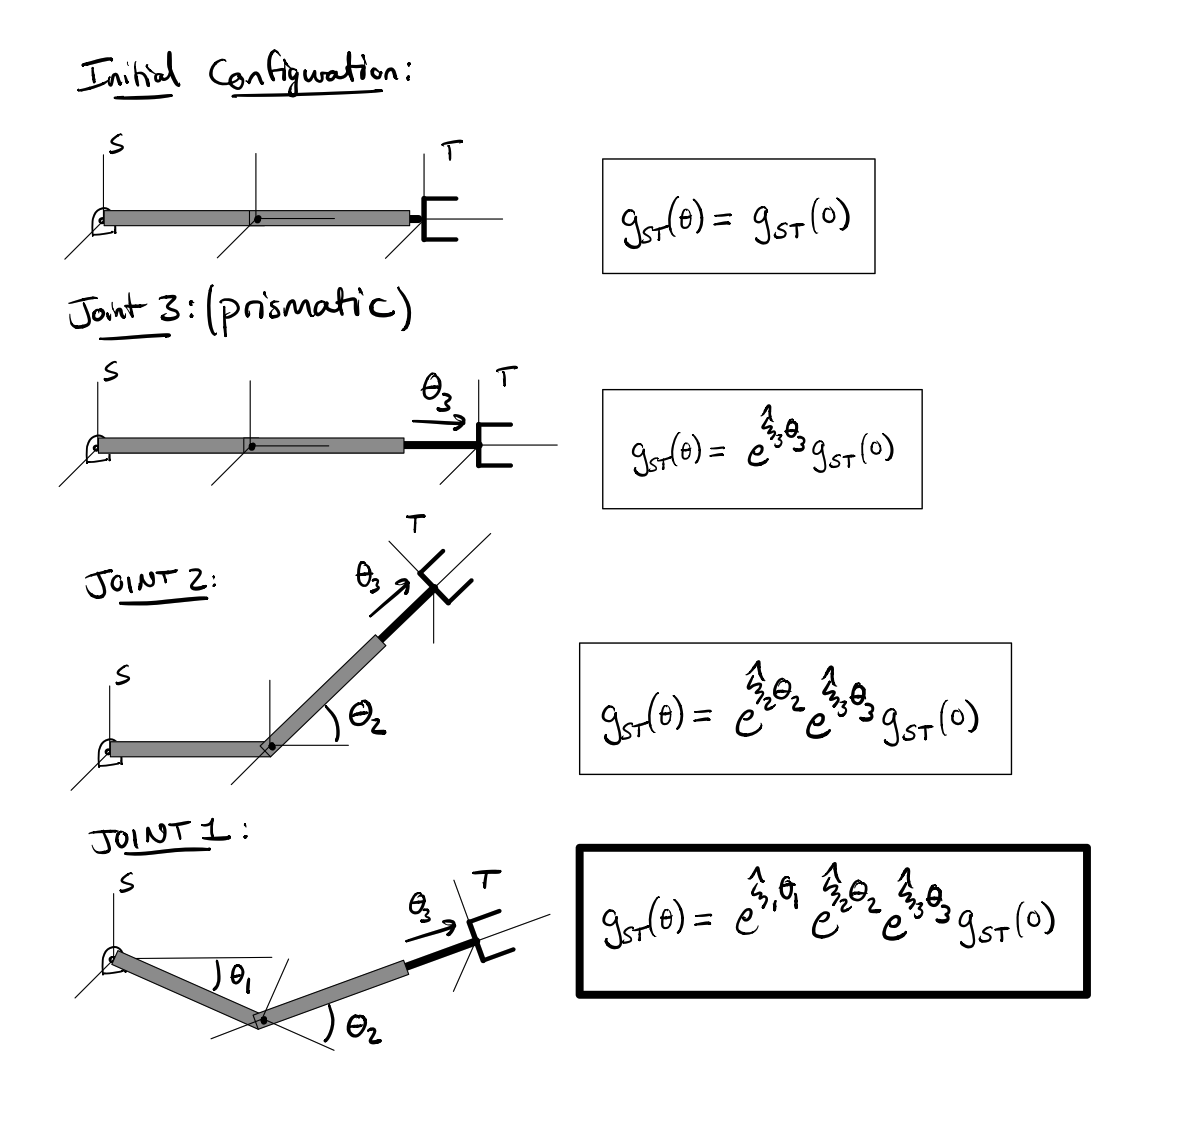 Initial Configuration:
S T
g_ST(θ) = g_ST(0)
Joint 3: (prismatic)
S θ₃ T
g_ST(θ) = e^{ξ̂₃θ₃} g_ST(0)
JOINT 2:
T
θ₃
S
θ₂
g_ST(θ) = e^{ξ̂₂θ₂} e^{ξ̂₃θ₃} g_ST(0)
JOINT 1:
S θ₃ T
θ₁
θ₂
g_ST(θ) = e^{ξ̂₁θ₁} e^{ξ̂₂θ₂} e^{ξ̂₃θ₃} g_ST(0)